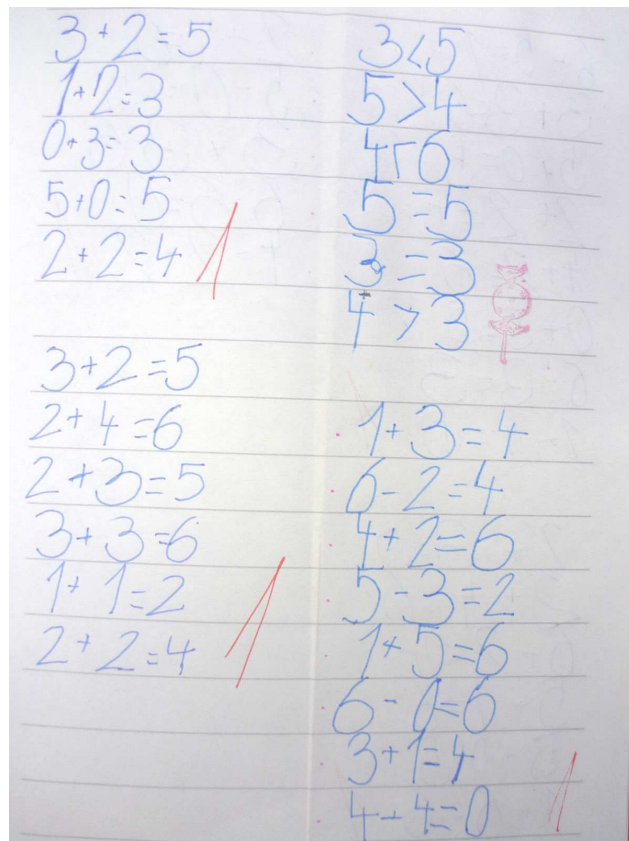 3+2=5
1+2=3
0+3=3
5+0=5
2+2=4
1
3+2=5
2+4=6
2+3=5
3+3=6
1+1=2
2+2=4
1
3<5
5>4
4<6
5=5
3=3
4>3
1+3=4
6-2=4
4+2=6
5-3=2
1+5=6
6-0=6
3+1=4
4-4=0
1